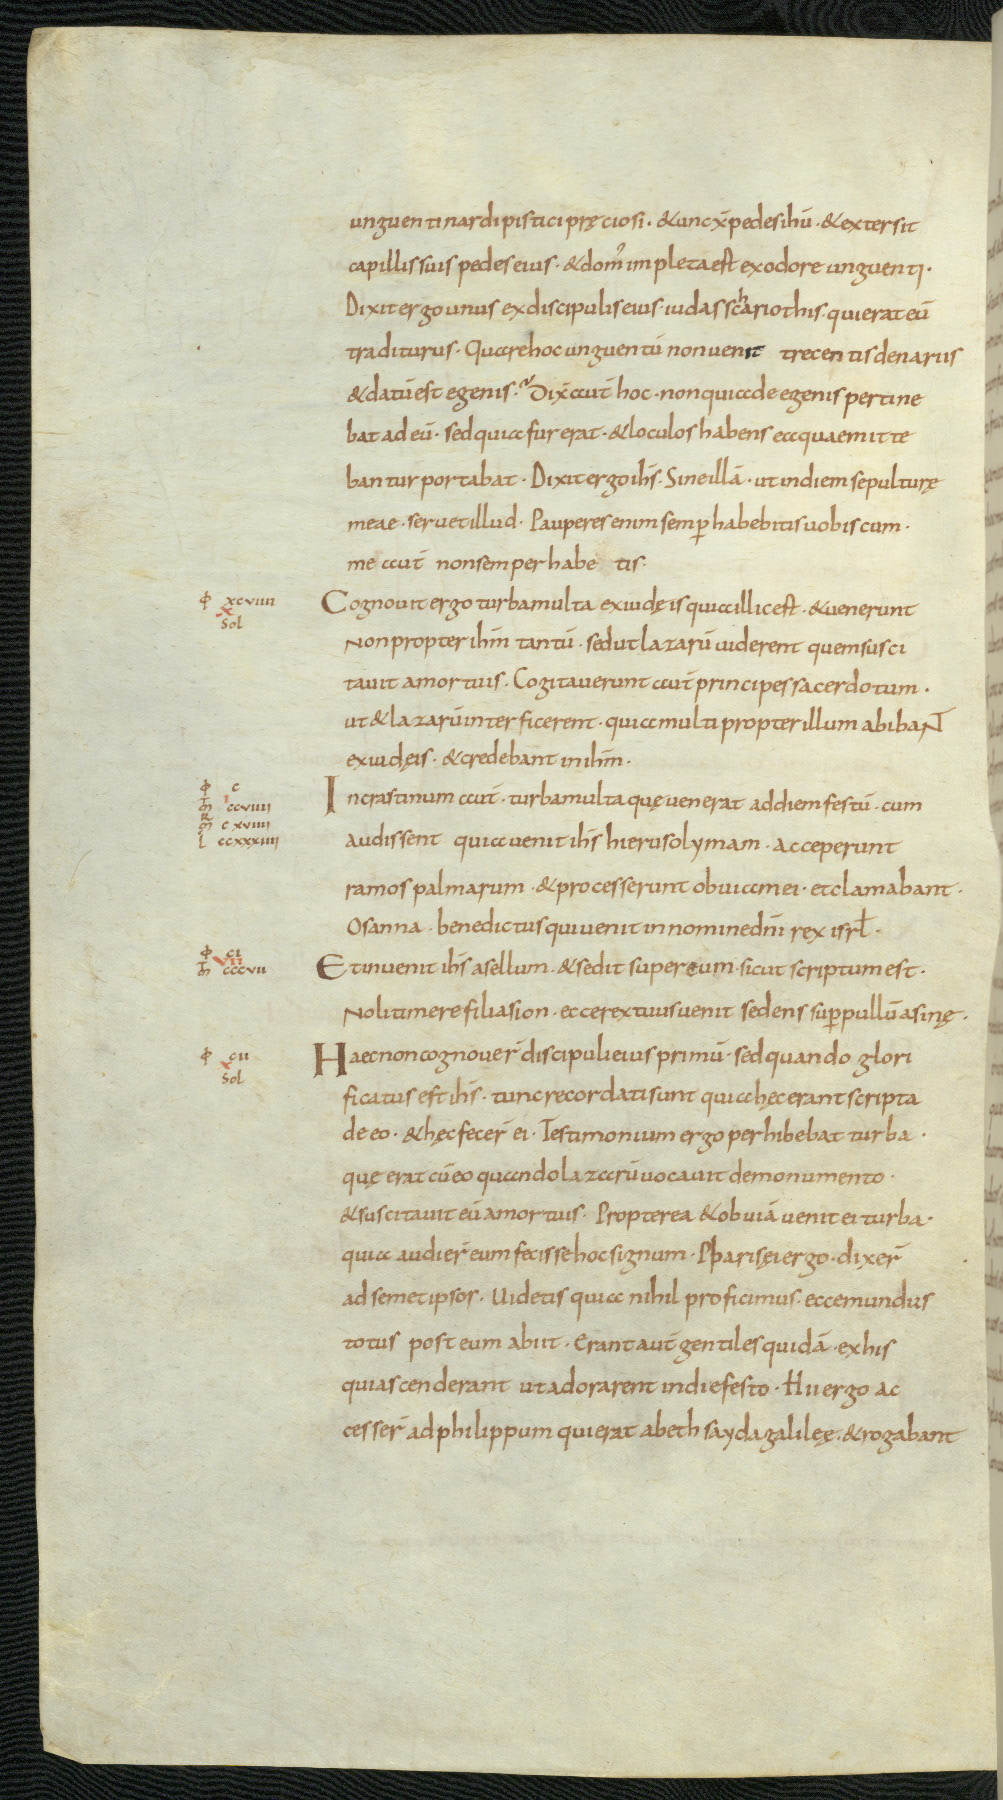 unguenti nardi pistici pręciosi · & unc̄x pedes ih̄u · & extersit
capillis suis pedes eius · & domꝰ impleta est ex odore unguenti ·
Dixit ergo unus ex discipulis eius · iudas schariothis · qui erat eū
traditurus · Quare hoc unguentū non uenit trecentis denariis
& datū est egenis · Dix̄ aut̄ hoc · non quia de egenis pertine
bat ad eū · sed quia fur erat · & loculos habens ea quae mitte
bantur portabat · Dixit ergo ih̄s · Sine illā · ut in diem sepulturę
meae · seruet illud · Pauperes enim semp̄ habebitis uobiscum ·
me aut̄ non semper habe tis ·
ф xcviiii
x
Sol
Cognouit ergo turba multa ex iudęis quia illic est · & uenerunt
Non propter ih̄m tantū · sed ut lazarū uiderent quem susci
tauit a mortuis · Cogitauerunt aut̄ principes sacerdotum ·
ut & lazarū interficerent · quia multi propter illum abibant
ex iudęis · & credebant in ih̄m ·
ф c
i
m̄ ccviiii
R
m̄ cxviiii
l ccxxxiiii
In crastinum aut̄ · turba multa quę uenerat ad diem festū · cum
audissent quia uenit ih̄s hierusolymam · acceperunt
ramos palmarum · & processerunt obuiam ei · et clamabant ·
Osanna · benedictus qui uenit in nomine dn̄i rex isrł ·
ф ci
vii
m̄ cccvii
Et inuenit ih̄s asellum · & sedit super eum · sicut scriptum est ·
Noli timere filia sion · ecce rex tuus uenit sedens sup̄ pullū asinę ·
ф cii
x
Sol
Haec non cognouer̄ discipuli eius primū · sed quando glori
ficatus est ih̄s · tunc recordati sunt quia hęc erant scripta
de eo · & hęc fecer̄ ei · Testimonium ergo perhibebat turba ·
quę erat cū eo quando lazarū uocauit de monumento ·
& suscitauit eū a mortuis · Propterea & obuiā uenit ei turba ·
quia audier̄ eum fecisse hoc signum · Pharisęi ergo · dixer̄
ad semetipsos · Uidetis quia nihil proficimus · ecce mundus
totus post eum abiit · Erant aut̄ gentiles quidā · ex his
qui ascenderant ut adorarent in die festo · Hii ergo ac
cesser̄ ad philippum qui erat a bethsayda galileę · & rogabant